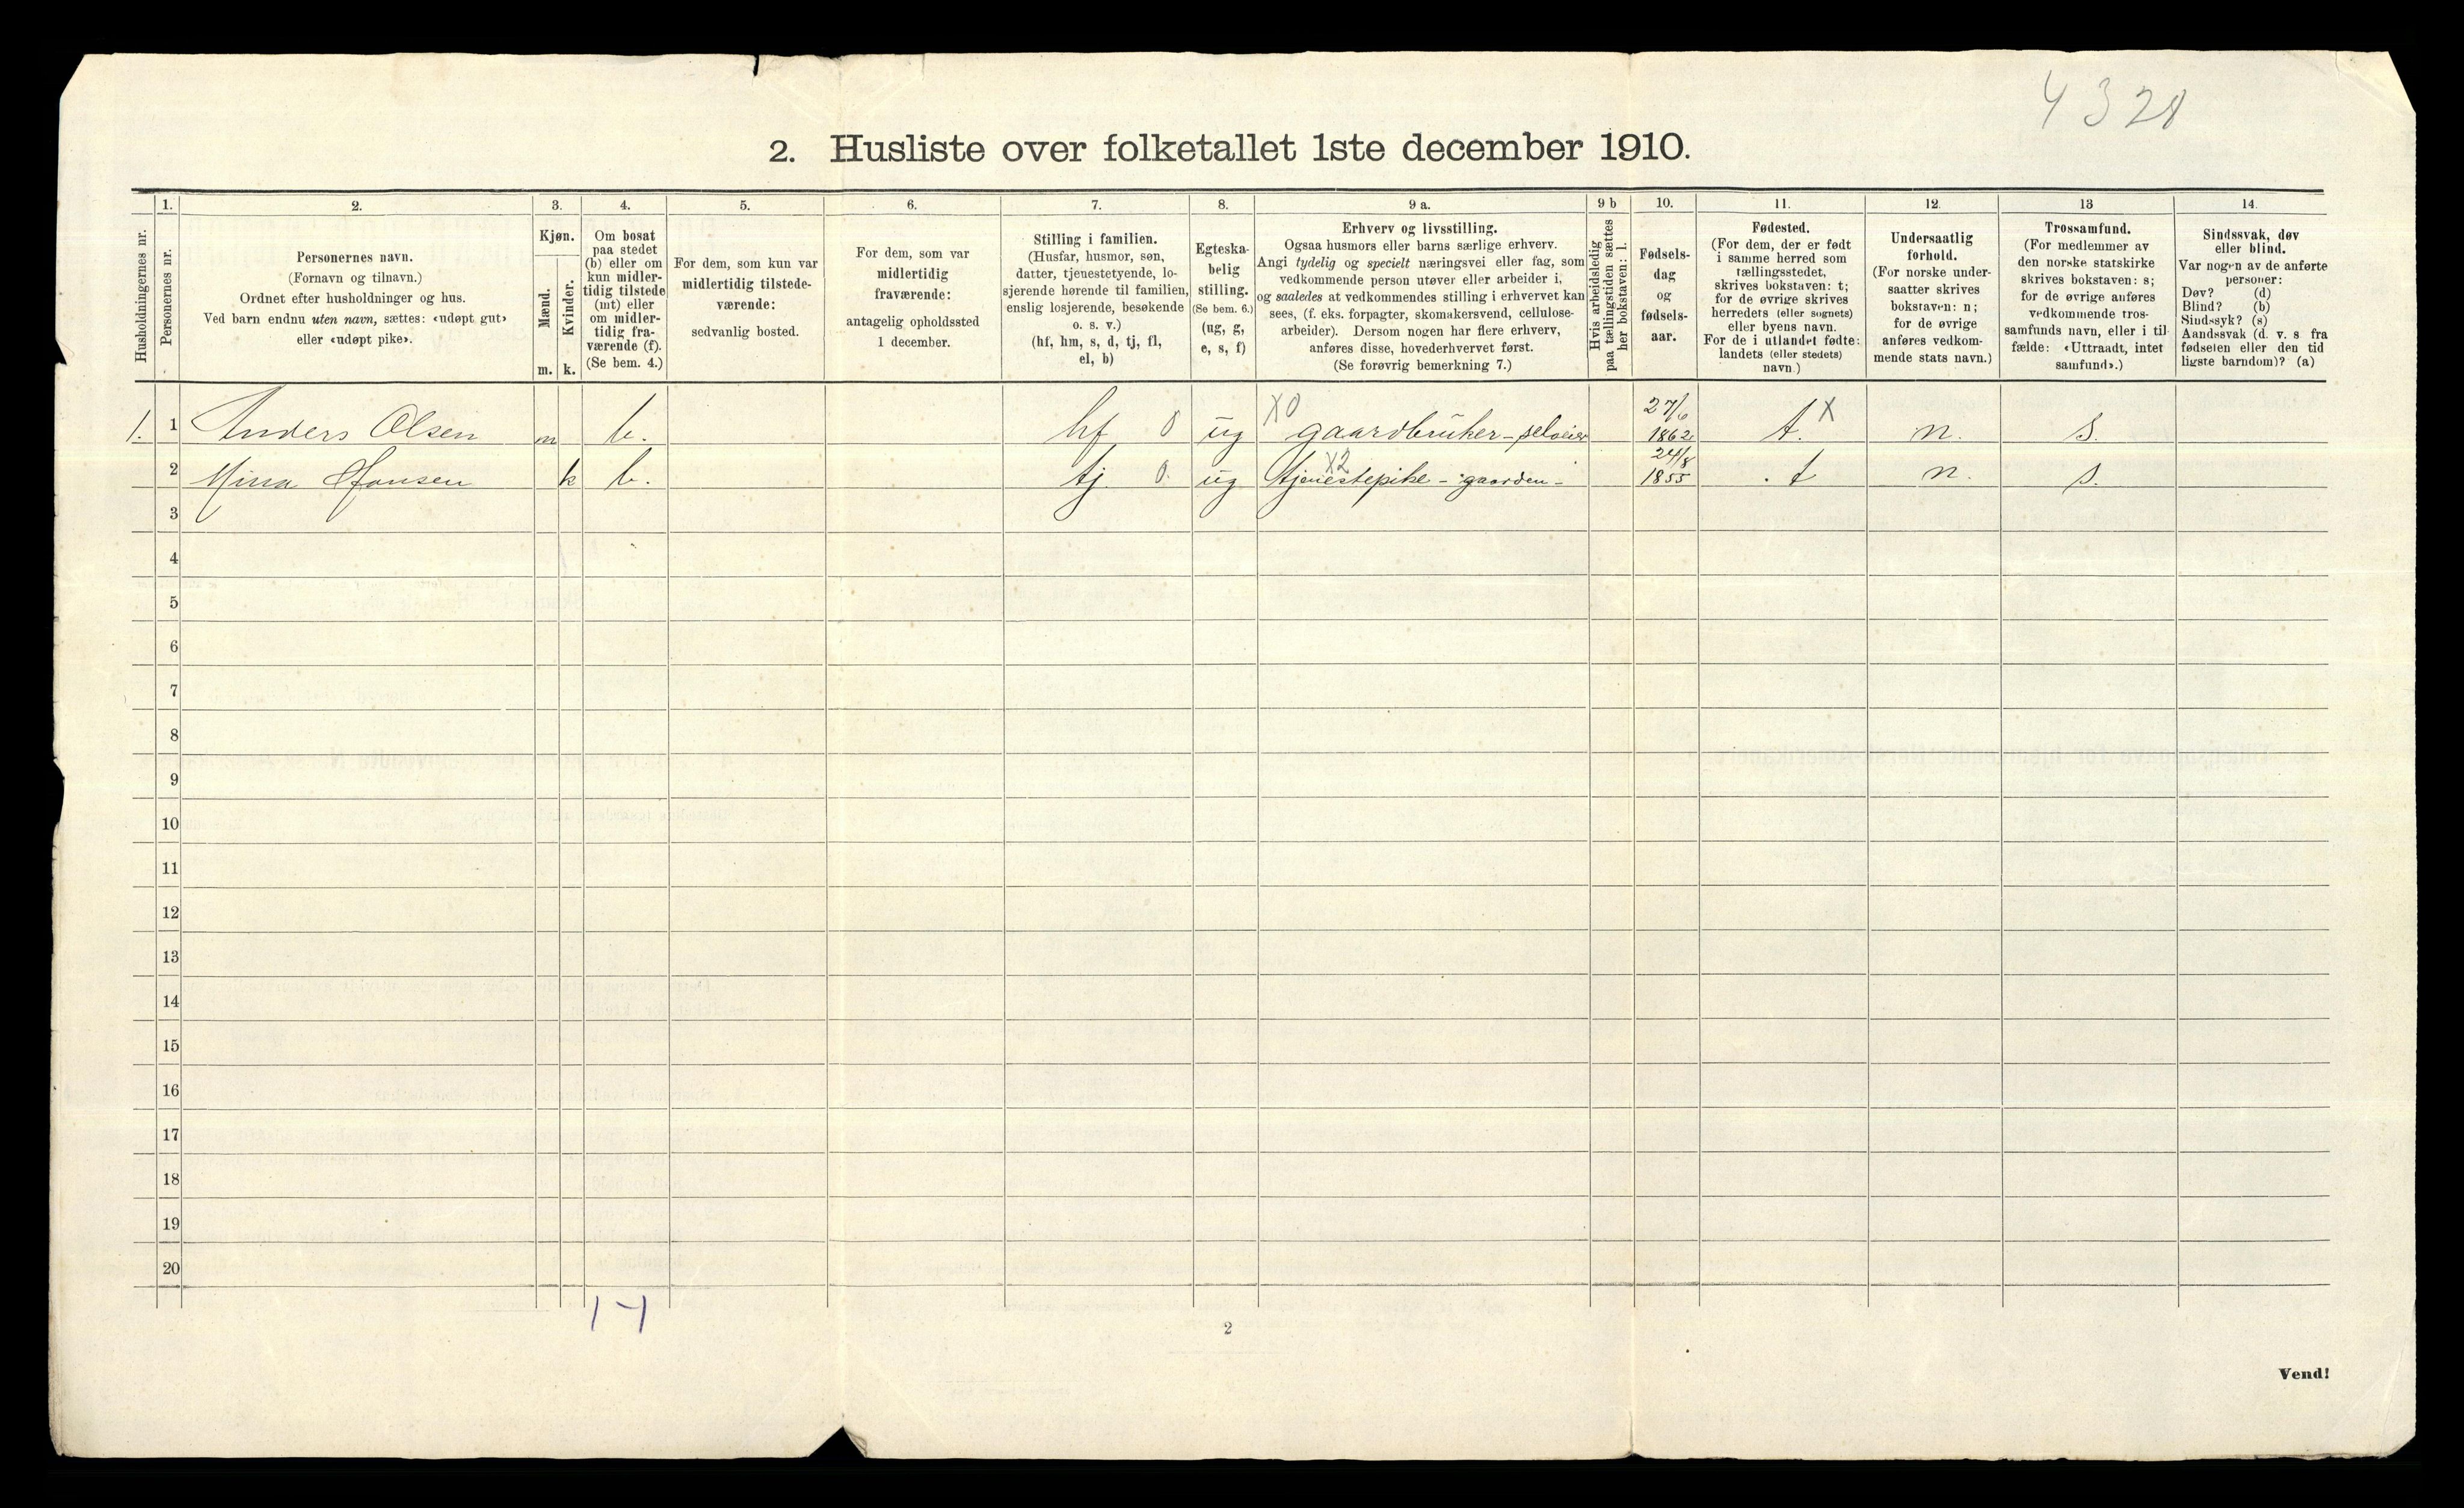 4328
2. Husliste over folketallet 1ste december 1910.
Husholdningernes nr.
1.
Personernes nr.
2.
Personernes navn.
(Fornavn og tilnavn.)
Ordnet efter husholdninger og hus.
Ved barn endnu uten navn, sættes: «udøpt gut»
eller «udøpt pike».
3.
Kjøn.
Mænd.
Kvinder.
m. k.
4.
Om bosat
paa stedet
(b) eller om
kun midler-
tidig tilstede
(mt) eller
om midler-
tidig fra-
værende (f).
(Se bem. 4.)
5.
For dem, som kun var
midlertidig tilstede-
værende:
sedvanlig bosted.
6.
For dem, som var
midlertidig
fraværende:
antagelig opholdssted
1 december.
7.
Stilling i familien.
(Husfar, husmor, søn,
datter, tjenestetyende, lo-
sjerende hørende til familien,
enslig losjerende, besøkende
o. s. v.)
(hf, hm, s, d, tj, fl,
el, b)
8.
Egteska-
belig
stilling.
(Se bem. 6.)
(ug, g,
e, s, f)
9 a.
Erhverv og livsstilling.
Ogsaa husmors eller barns særlige erhverv.
Angi tydelig og specielt næringsvei eller fag, som
vedkommende person utøver eller arbeider i,
og saaledes at vedkommendes stilling i erhvervet kan
sees, (f. eks. forpagter, skomakersvend, cellulose-
arbeider). Dersom nogen har flere erhverv,
anføres disse, hovederhvervet først.
(Se forøvrig bemerkning 7.)
9 b
Hvis arbeidsledig
paa tællingstiden sættes
her bokstaven: l.
10.
Fødsels-
dag
og
fødsels-
aar.
11.
Fødested.
(For dem, der er født
i samme herred som
tællingsstedet,
skrives bokstaven: t;
for de øvrige skrives
herredets (eller sognets)
eller byens navn.
For de i utlandet fødte:
landets (eller stedets)
navn.)
12.
Undersaatlig
forhold.
(For norske under-
saatter skrives
bokstaven: n;
for de øvrige
anføres vedkom-
mende stats navn.)
13
Trossamfund.
(For medlemmer av
den norske statskirke
skrives bokstaven: s;
for de øvrige anføres
vedkommende tros-
samfunds navn, eller i til-
fælde: «Uttraadt, intet
samfund».)
14.
Sindssvak, døv
eller blind.
Var nogen av de anførte
personer:
Døv? (d)
Blind? (b)
Sindssyk? (s)
Aandssvak (d. v. s fra
fødselen eller den tid
ligste barndom)? (a)
1. 1 Anders Olsen m b. hf 0 ug X0 gaardbruker - selveier 27/6 1862 t. X n. s.
2 Mina Hansen k b. tj. 0. ug X2 tjenestepike - gaarden - 24/8 1855 t n. s.
3
4
5
6
7
8
9
10
11
12
13
14
15
16
17
18
19
20
2
Vend!